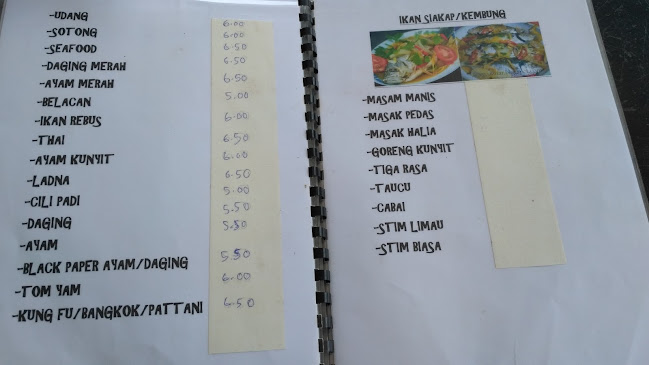 -UDANG 6.00
-SOTONG 6.00
-SEAFOOD 6.50
-DAGING MERAH 6.50
-AYAM MERAH 6.50
-BELACAN 5.00
-IKAN REBUS 6.00
-THAI 6.50
-AYAM KUNYIT 6.00
-LADNA 6.50
-CILI PADI 5.00
-DAGING 5.50
-AYAM 5.50
-BLACK PAPER AYAM/DAGING 5.50
-TOM YAM 6.00
-KUNG FU/BANGKOK/PATTANI 6.50
IKAN SIAKAP/KEMBUNG
-MASAM MANIS
-MASAK PEDAS
-MASAK HALIA
-GORENG KUNYIT
-TIGA RASA
-TAUCU
-CABAI
-STIM LIMAU
-STIM BIASA